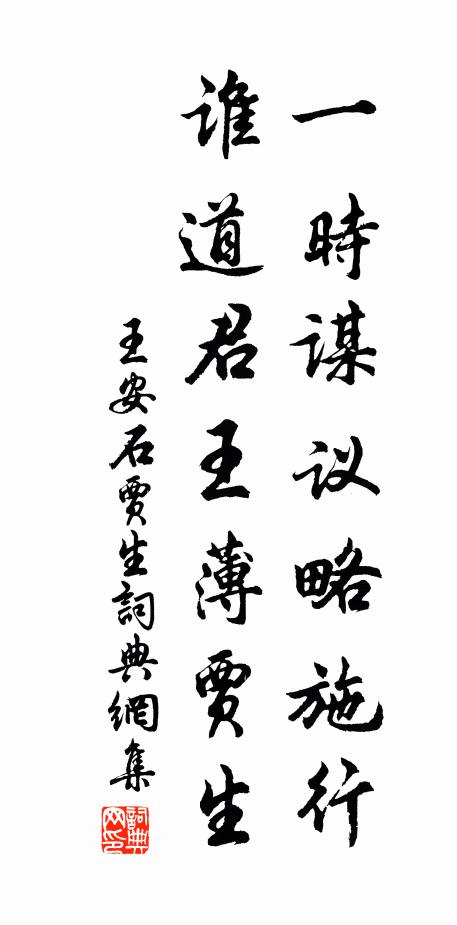 一時謀议略施行
谁道君王薄賈生
王安石賈生詞典網集
詞典网印